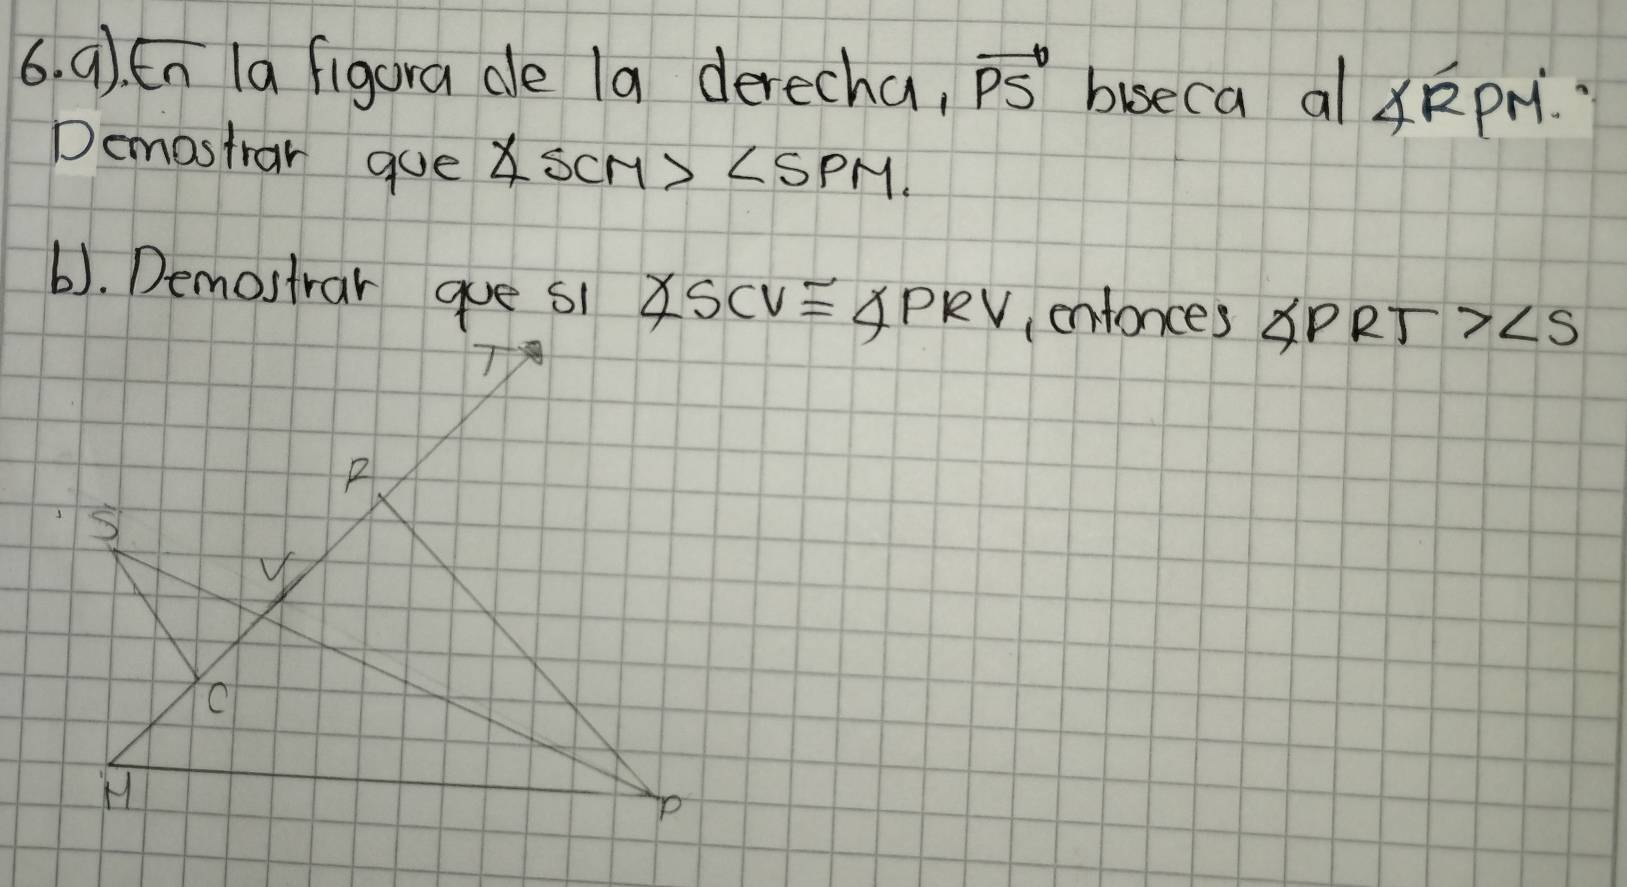 6.a). En la figura de la derecha, PS biseca al ∡RPM.
Demostrar que ∡SCM > <SPM.
b). Demostrar que si ∡SCV ≅ ∡PRV, entonces ∡PRT > <S
T
R
S
V
C
M
P